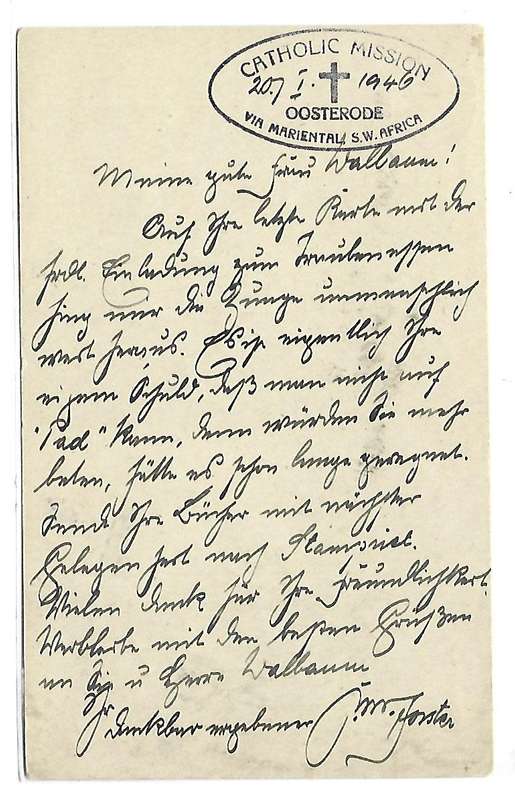 CATHOLIC MISSION
20./I. 1946
OOSTERODE
VIA MARIENTAL, S.W. AFRICA
Meine gute Frau Walbaum!
Auf Ihre letzte Karte mit der
frdl. Einladung zum Traubenessen
hing mir die Zunge unmenschlich
weit heraus. Es ist eigentlich Ihre
eigene Schuld, daß man nicht auf
"Pad" kann, denn würden Sie mehr
beten, hätte es schon lange geregnet.
Sende Ihre Bücher mit nächster
Gelegenheit nach Stampriet.
Vielen Dank für Ihre Freundlichkeit.
Verbleibe mit den besten Grüßen
an Sie u Herrn Walbaum
Ihr
dankbar ergebener Forster